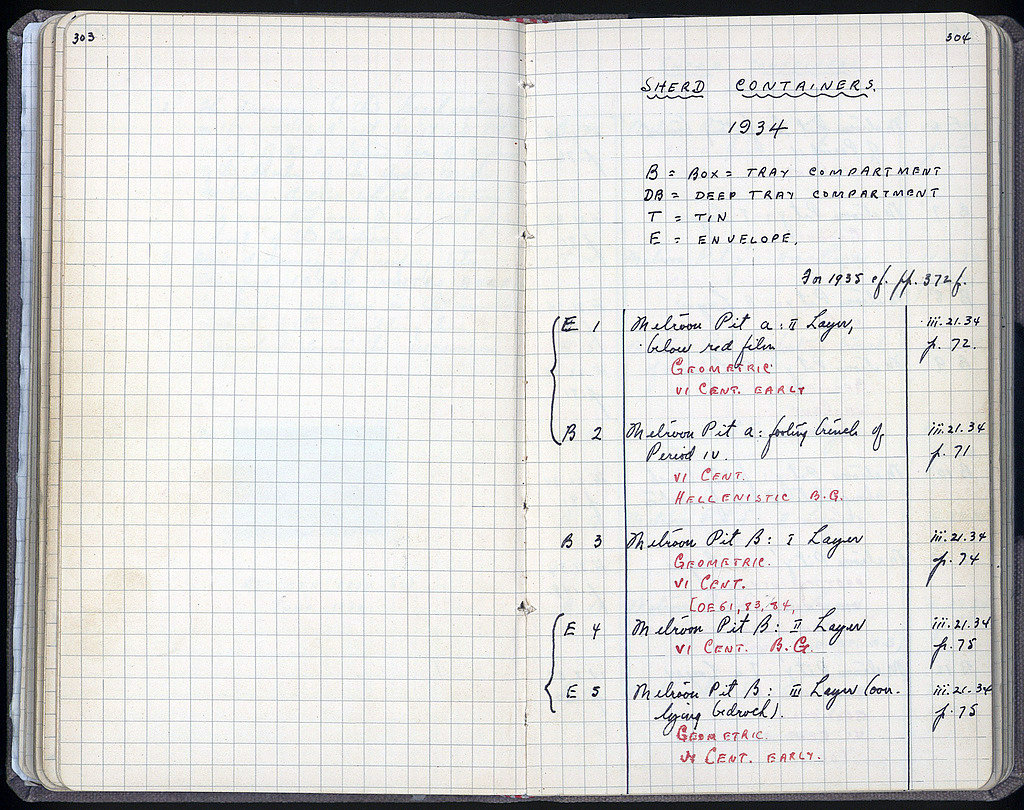 303
304
SHERD CONTAINERS.
1934
B = BOX = TRAY COMPARTMENT
DB = DEEP TRAY COMPARTMENT
T = TIN
E = ENVELOPE.
For 1935 cf. pp. 372 f.
E 1 Metrōon Pit a: II Layer, iii.21.34
below red film p. 72.
GEOMETRIC
VI CENT. EARLY
B 2 Metrōon Pit a: footing trench of iii.21.34
Period IV. p. 71
VI CENT.
HELLENISTIC B.G.
B 3 Metrōon Pit B: I Layer iii.21.34
GEOMETRIC. p. 74
VI CENT.
[OE 61, 83, 84,
E 4 Metrōon Pit B: II Layer iii.21.34
VI CENT. B.G. p. 75
E 5 Metrōon Pit B: III Layer (over- iii.21.34
lying bedrock). p. 75
GEOMETRIC.
VI CENT. EARLY.